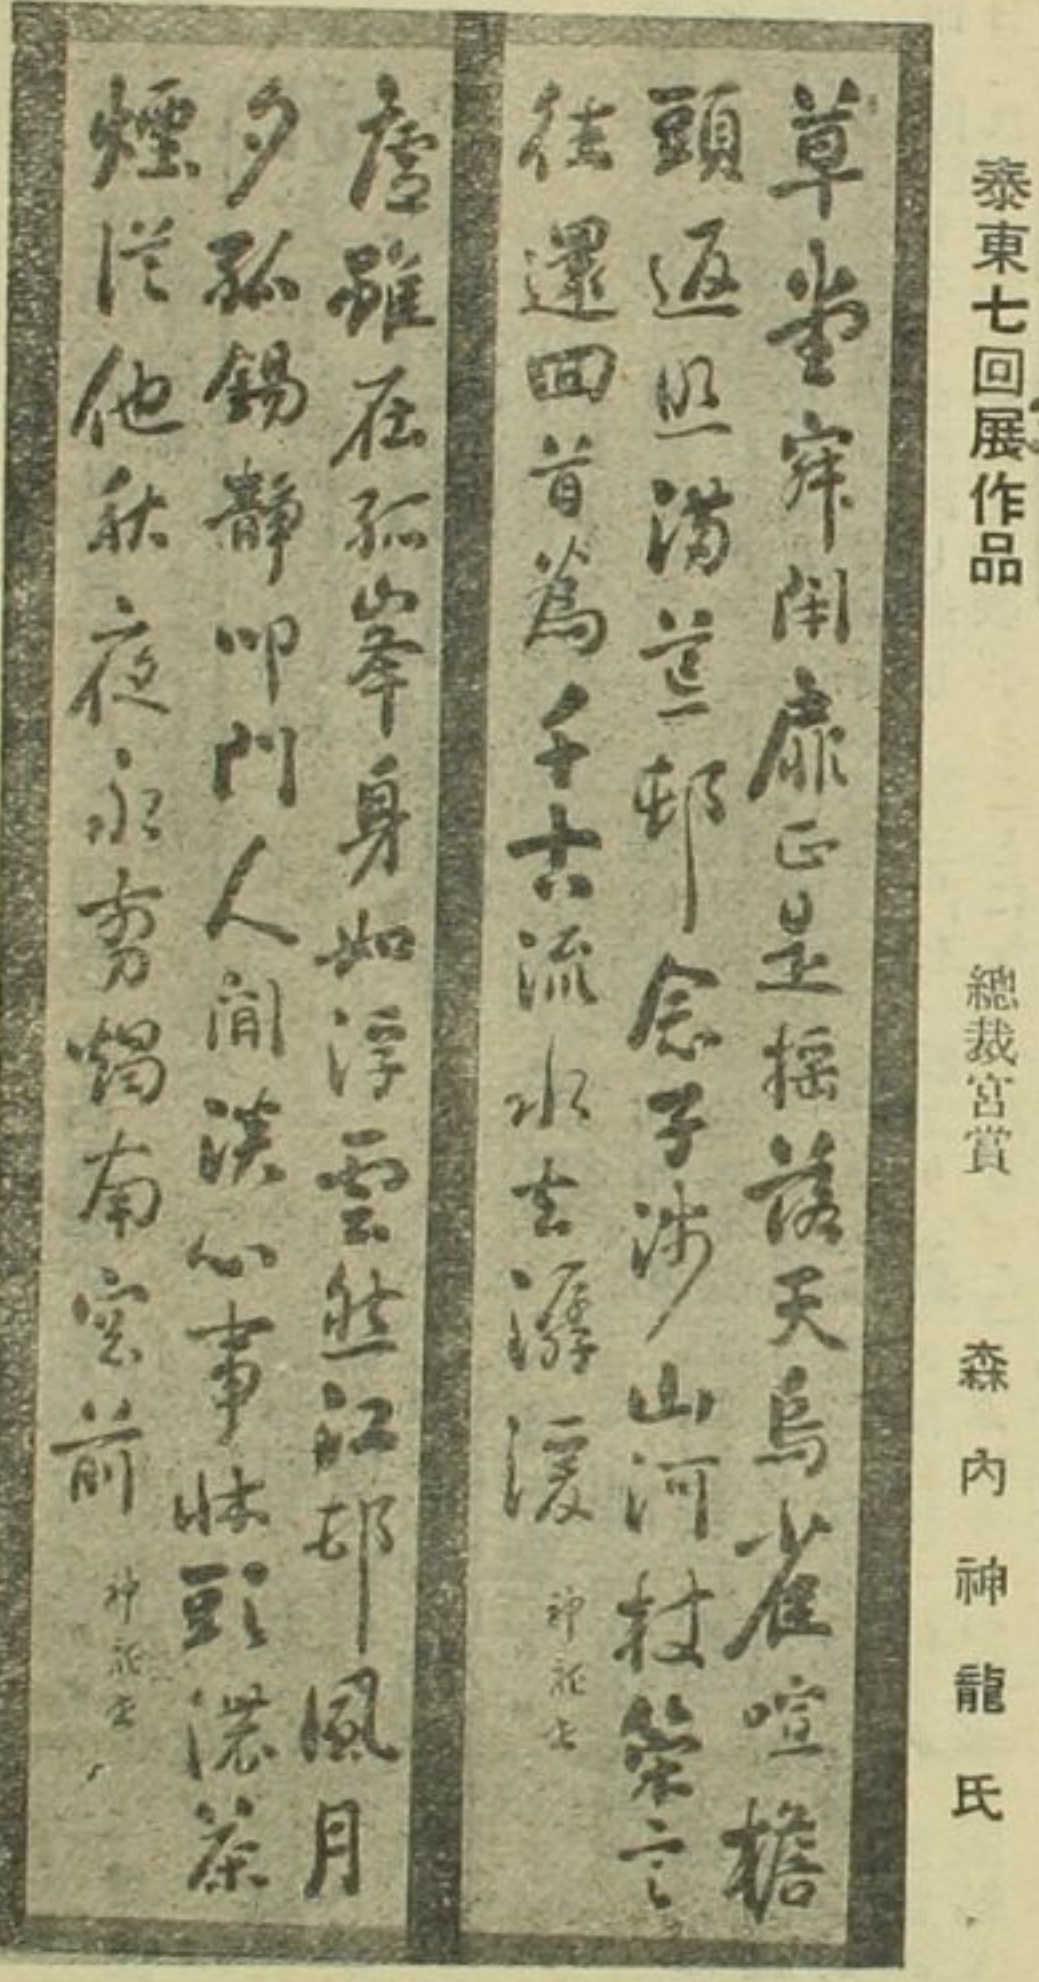 泰東七回展作品 總裁宮賞 森内神龍氏
草堂寂閑扉正是揺落天烏雀喧檐
頭返照満荒邨念子渉山河杖策言
往還回首為千古流水去潺湲 神龍書
廬雖在孤峯身如浮雲然江邨風月
夕孤錫静叩門人間淡心事牀頭濃茶
煙従他秋夜永剪燭南窓前 神龍書